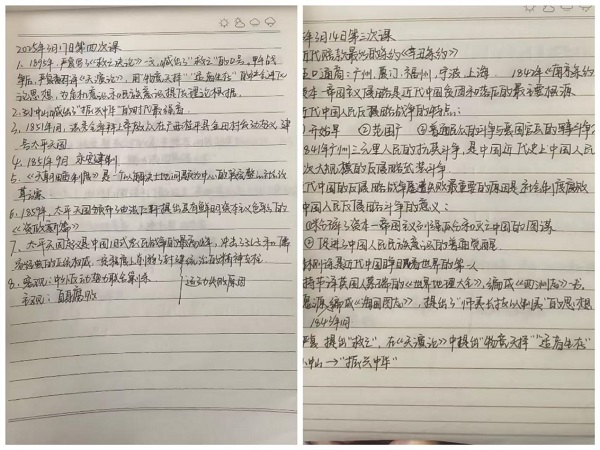 2025年3月17日第四次课
1. 1895年,严复写《救亡决论》一文,喊出了"救亡"的口号。甲午战
争后,严复翻译《天演论》,用"物竞天择""适者生存"的社会进化
论思想,为危机意识和民族意识提供理论根据。
2. 孙中山喊出了"振兴中华"的时代最强音
3. 1851年1月,洪秀全率拜上帝教众在广西桂平县金田村发动起义 建
号太平天国
4. 1851年9月 永安建制
5. 《天朝田亩制度》是一个以解决土地问题为中心的
革
6. 1859年,太平天国
的《资政新篇》
7. 太平天国起义是中国旧式农民战争的最高峰,冲击了孔子和儒
家经典的正统权威,
8. 客观:中外反动势力联合
主观: 自身 运动失败原因
年3月14日第二次课
近代
五口通商:广州、厦门、福州、宁波、上海 1842年《南京条约》
资本-帝国主义侵略是近代中国贫困和落后的最主要根源
近代中国人民反侵略战争的特点:
①开始早 ②范围广
1841年广州三元里人民的抗英斗争,是中国近代史上中国人民
次大规模的反侵略武装斗争
近代中国的反侵略战争屡遭失败最重要的原因是社会制度腐败
中国人民反侵略斗争的意义:
①粉碎了资本-帝国主义列强瓜分和灭亡中国的图谋
②促进了中国人民民族意识的普遍觉醒
林则徐是近代中国睁眼看世界的第一人
《世界地理大全》,编成《四洲志》一书
魏源编成《海国图志》,提出了"师夷长技以制夷"的思想
1843年1月
严复 提出"救亡",在《天演论》中提出"物竞天择""适者生存"
孙中山→"振兴中华"